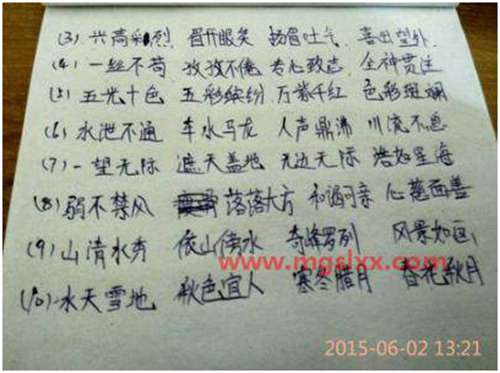 (3) 兴高采烈 眉开眼笑 扬眉吐气 喜出望外
(4) 一丝不苟 孜孜不倦 专心致志 全神贯注
(5) 五光十色 五彩缤纷 万紫千红 色彩斑斓
(6) 水泄不通 车水马龙 人声鼎沸 川流不息
(7) 一望无际 遮天盖地 无边无际 浩如星海
(8) 弱不禁风 落落大方 和谒可亲 心慈面善
(9) 山清水秀 依山傍水 奇峰罗列 风景如画
www.mgslxx.com
(10) 水天雪地 秋色宜人 寒冬腊月 春花秋月
2015-06-02 13:21